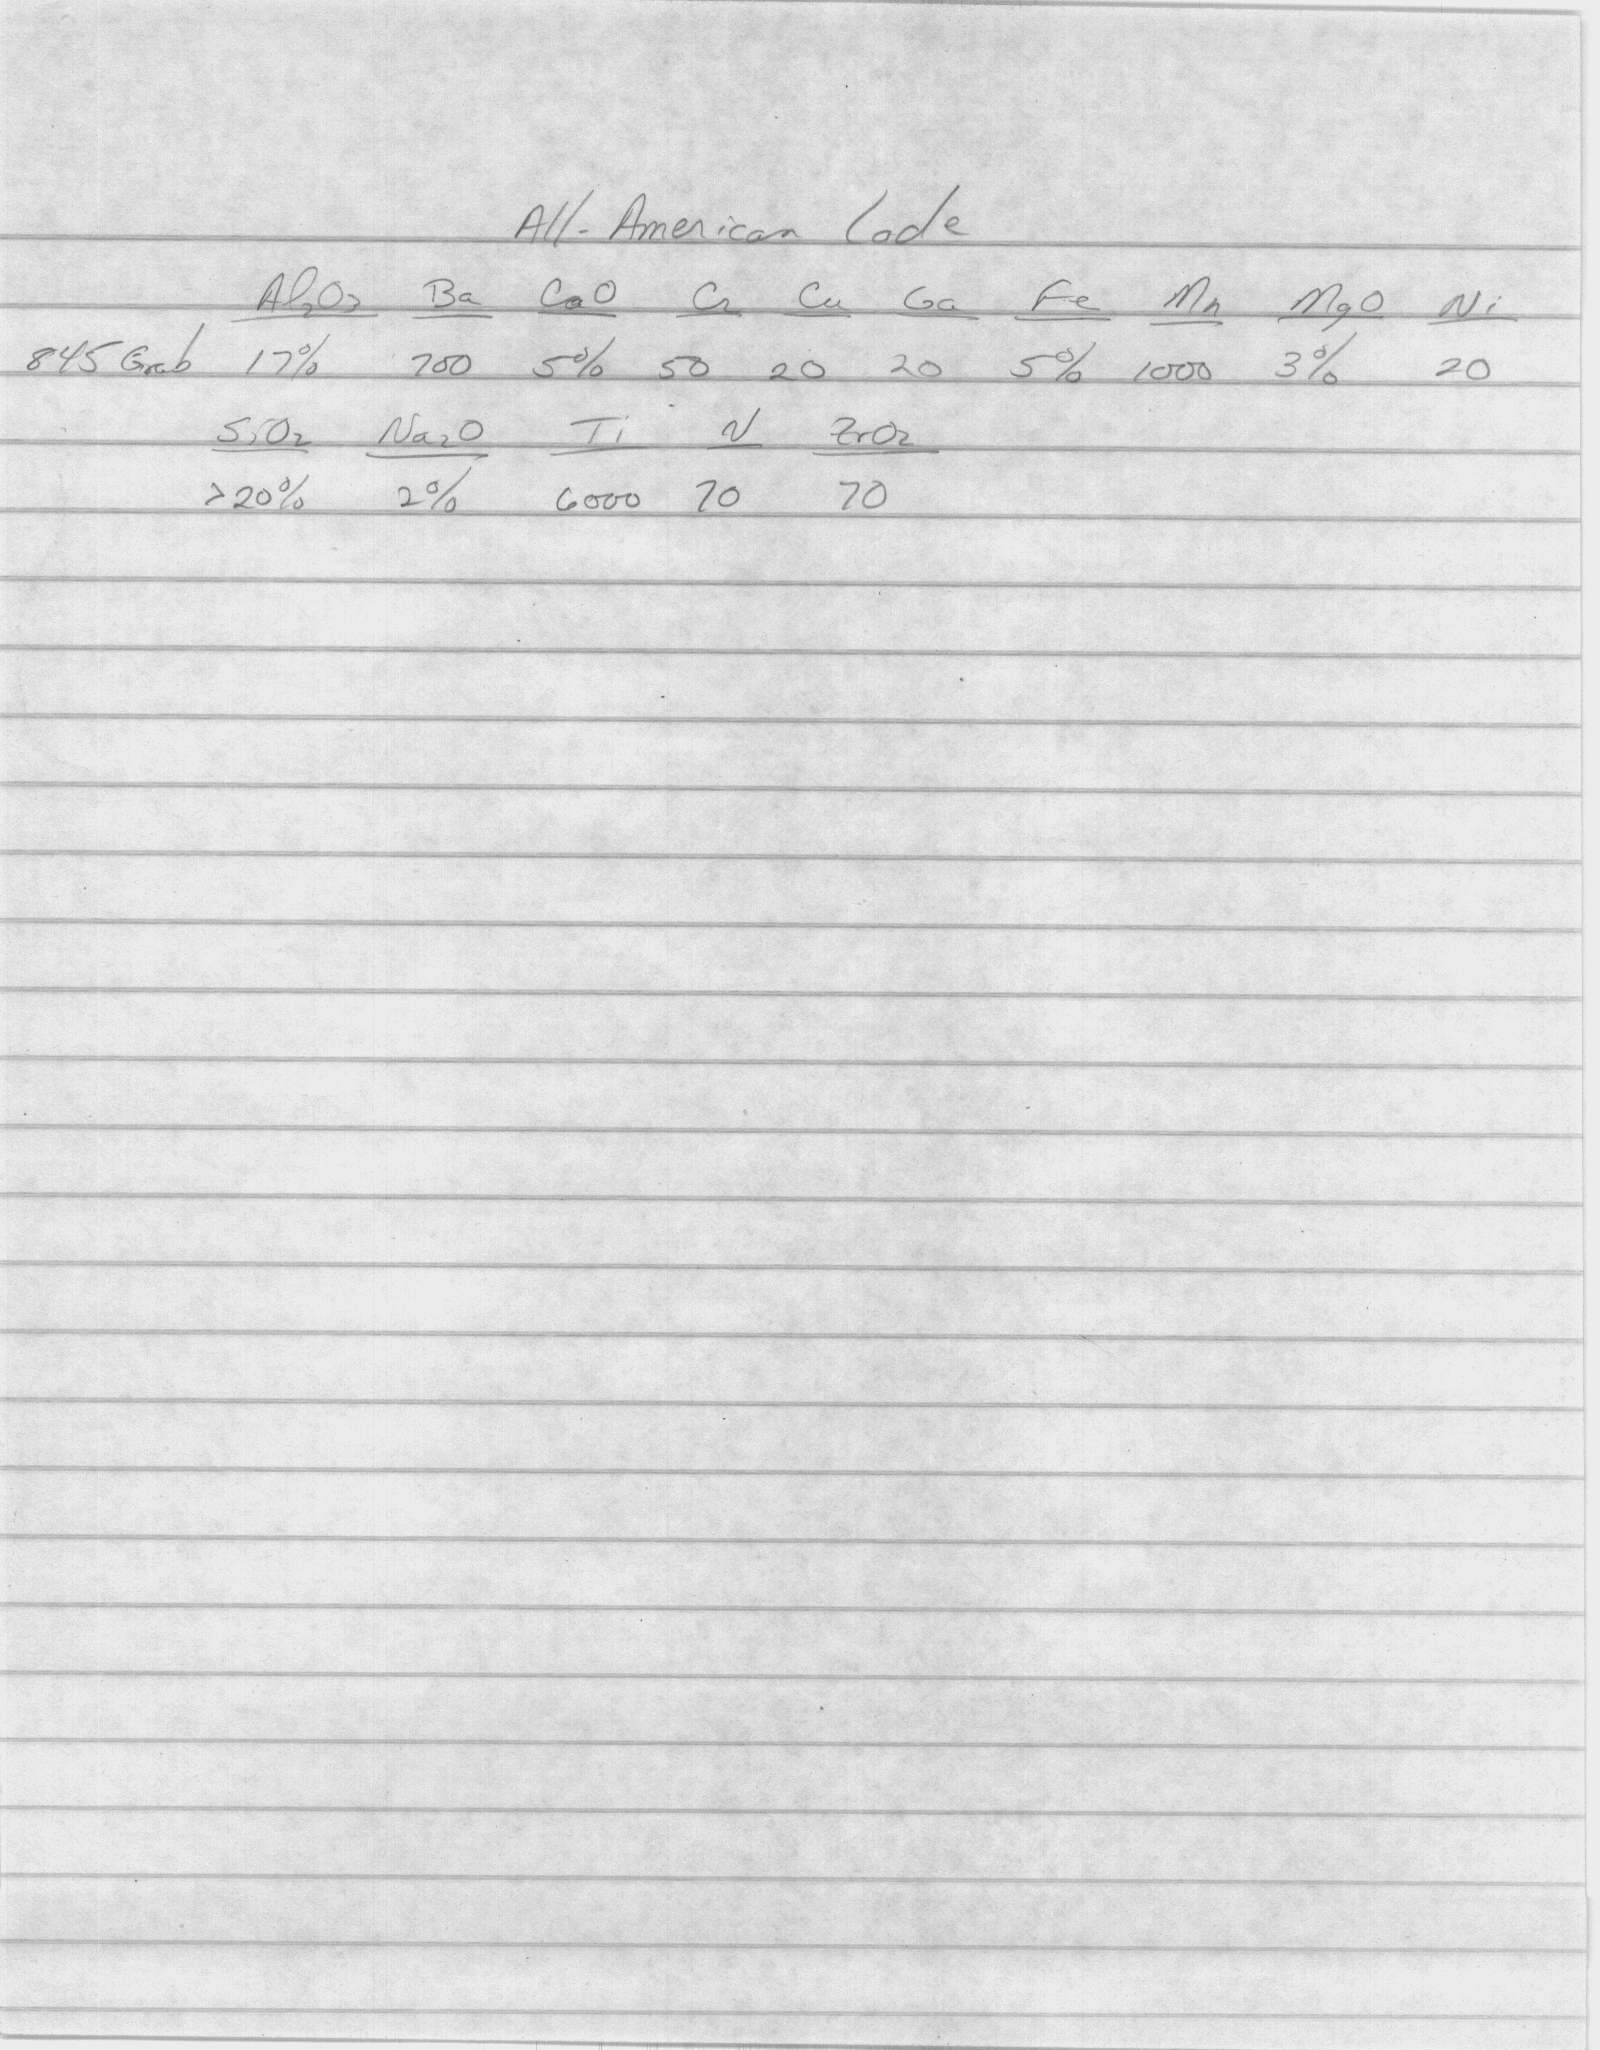 All-American Lode
Al2O3 Ba CaO Cr Cu Ga Fe Mn MgO Ni
845 Grab 17% 700 5% 50 20 20 5% 1000 3% 20
SiO2 Na2O Ti V ZrO2
>20% 2% 6000 70 70